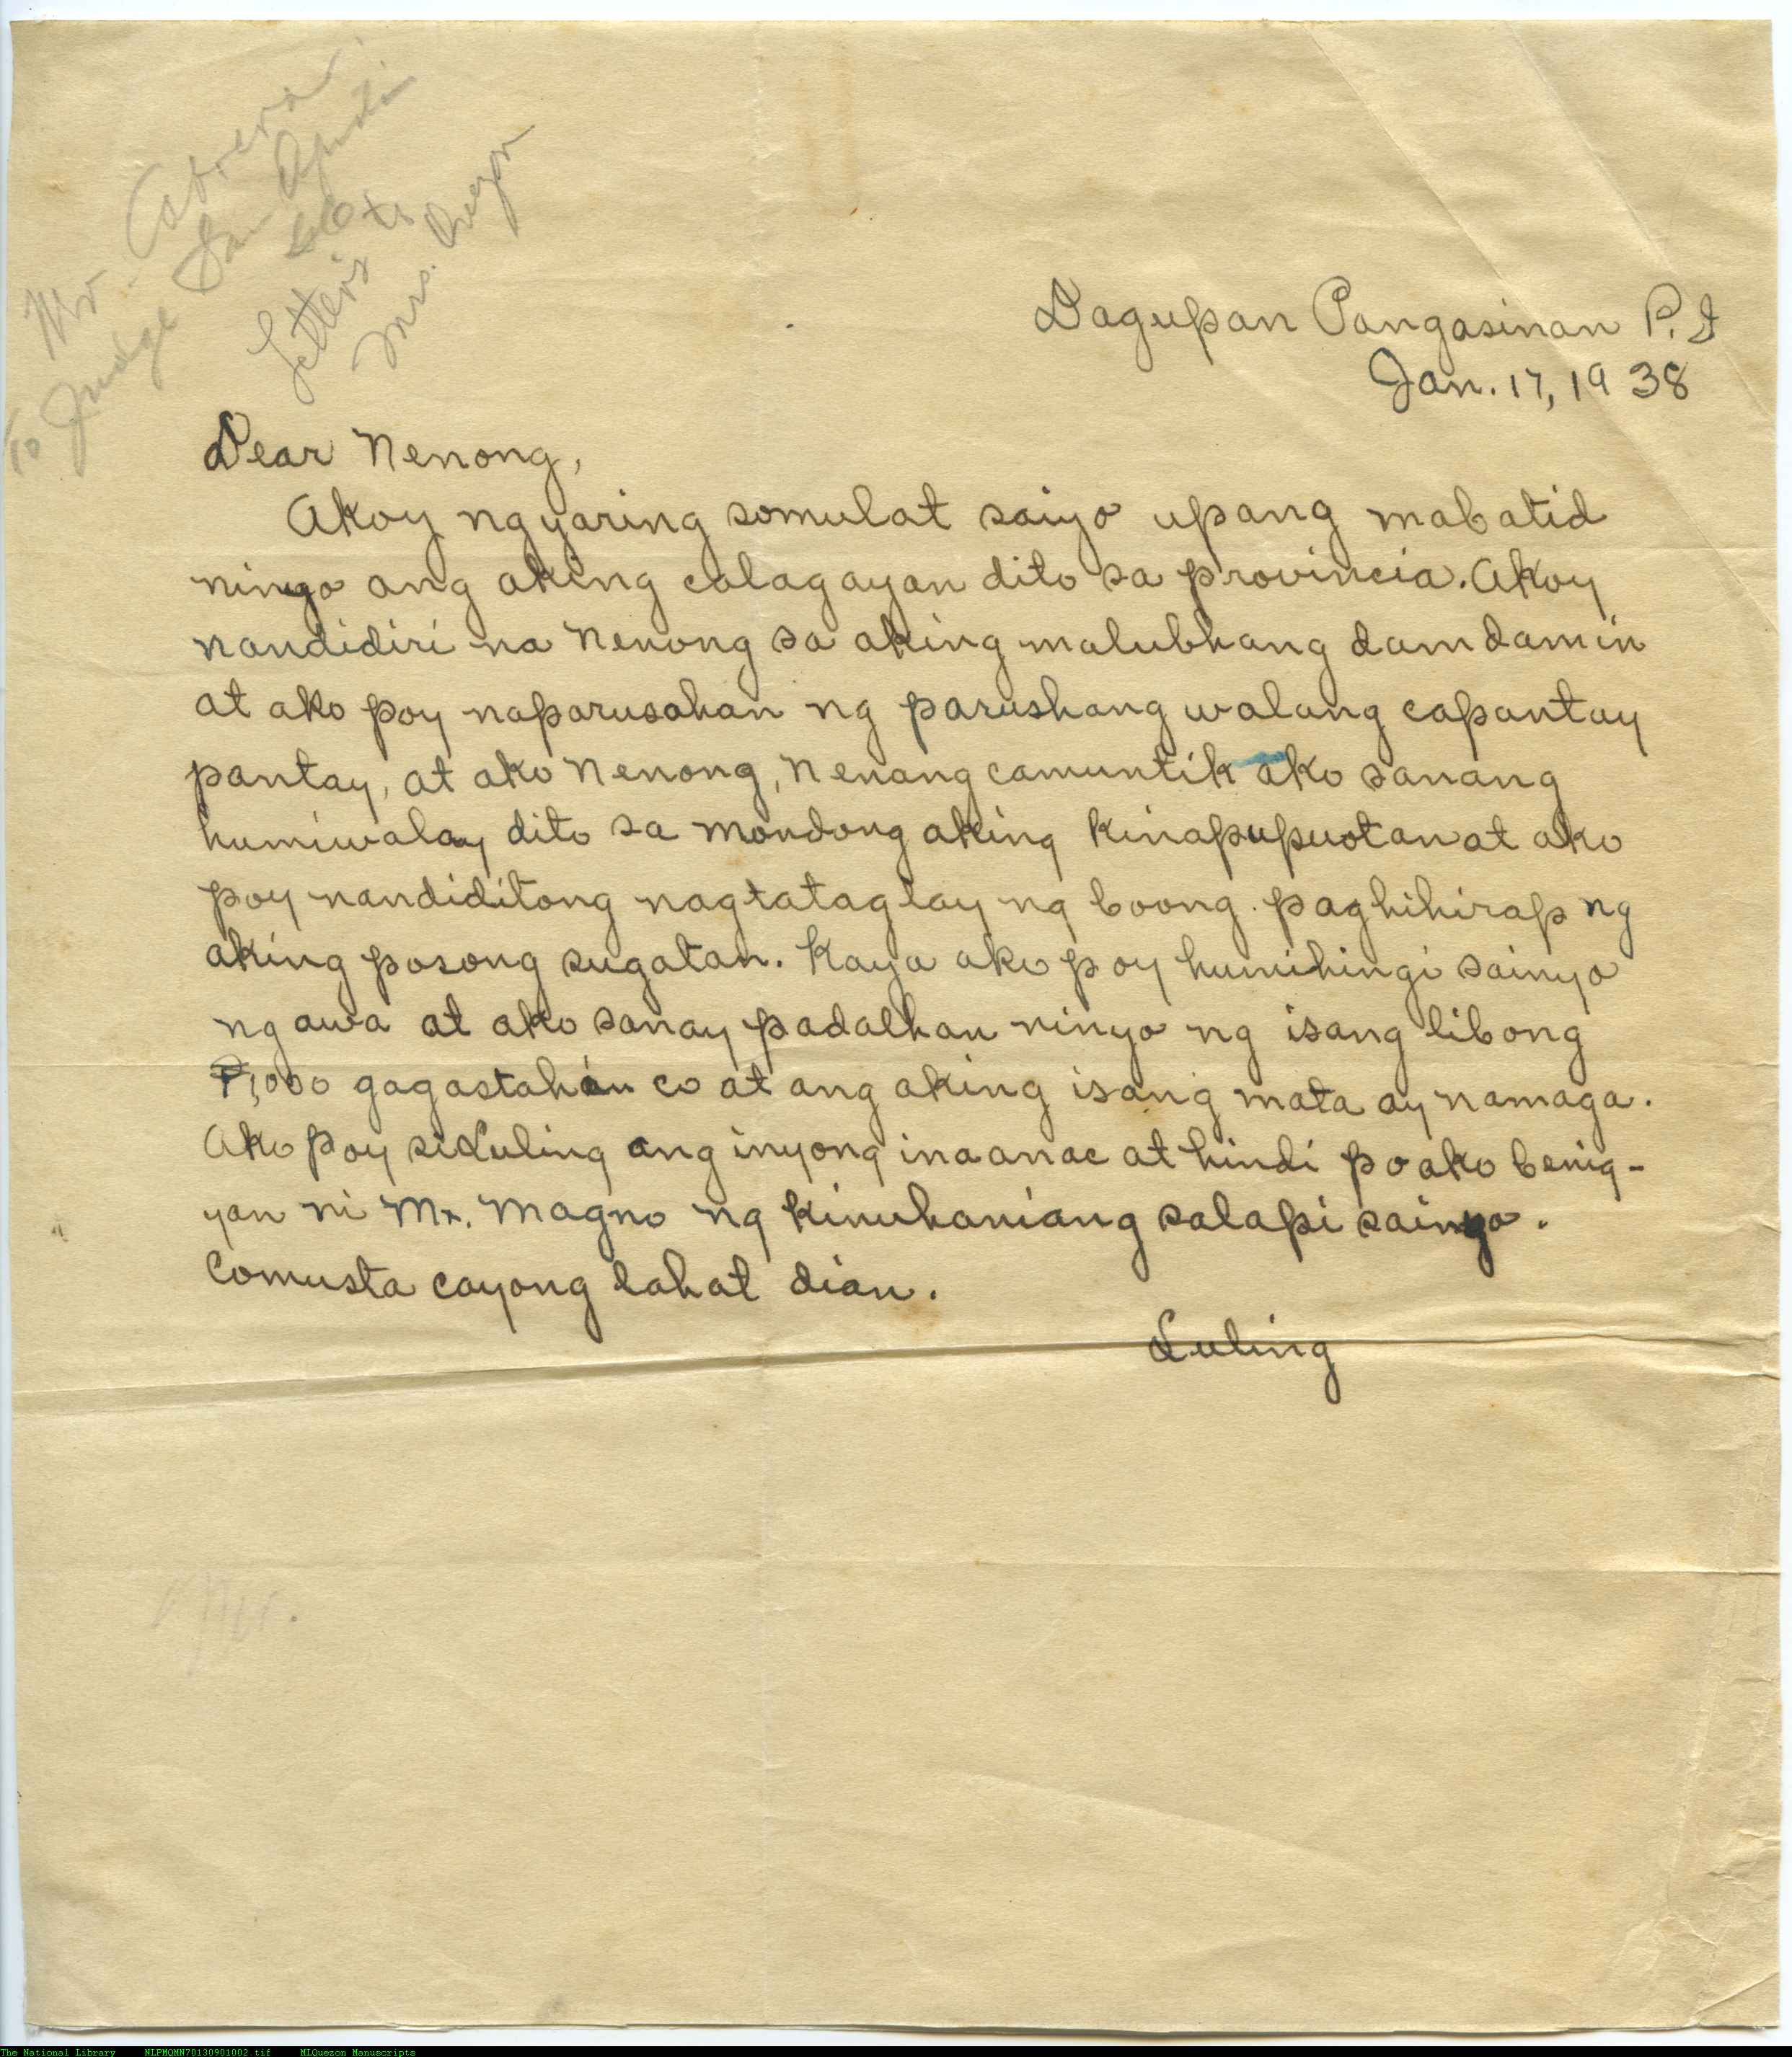 Mr. Cabrera
To Judge San Agustin
letters to
Mrs. Quezon
Dagupan Pangasinan P.I
Jan. 17, 1938
Dear Nenong,
Akoy ngyaring somulat saiyo upang mabatid
ninyo ang aking calagayan dito sa provincia. Akoy
nandidiri na Nenong sa aking malubhang damdamin
at ako poy naparusahan ng parushang walang capantay
pantay, at ako Nenong, Nenang camuntik ako sanang
humiwalay dito sa mondong aking kinapupuotan at ako
poy nandiditong nagtataglay ng boong paghihirap ng
aking posong sugatan. Kaya ako poy humihingi sainyo
ng awa at ako sanay padalhan ninyo ng isang libong
₱1,000 gagastahan co at ang aking isang mata ay namaga.
Ako poy si Luling ang inyong inaanac at hindi po ako benig-
yan ni Mr. Magno ng kinuhaniang salapi sainyo.
Comusta cayong lahat dian.
Luling
Mr.
The National Library NLPMQMN70130901002.tif MLQuezon Manuscripts